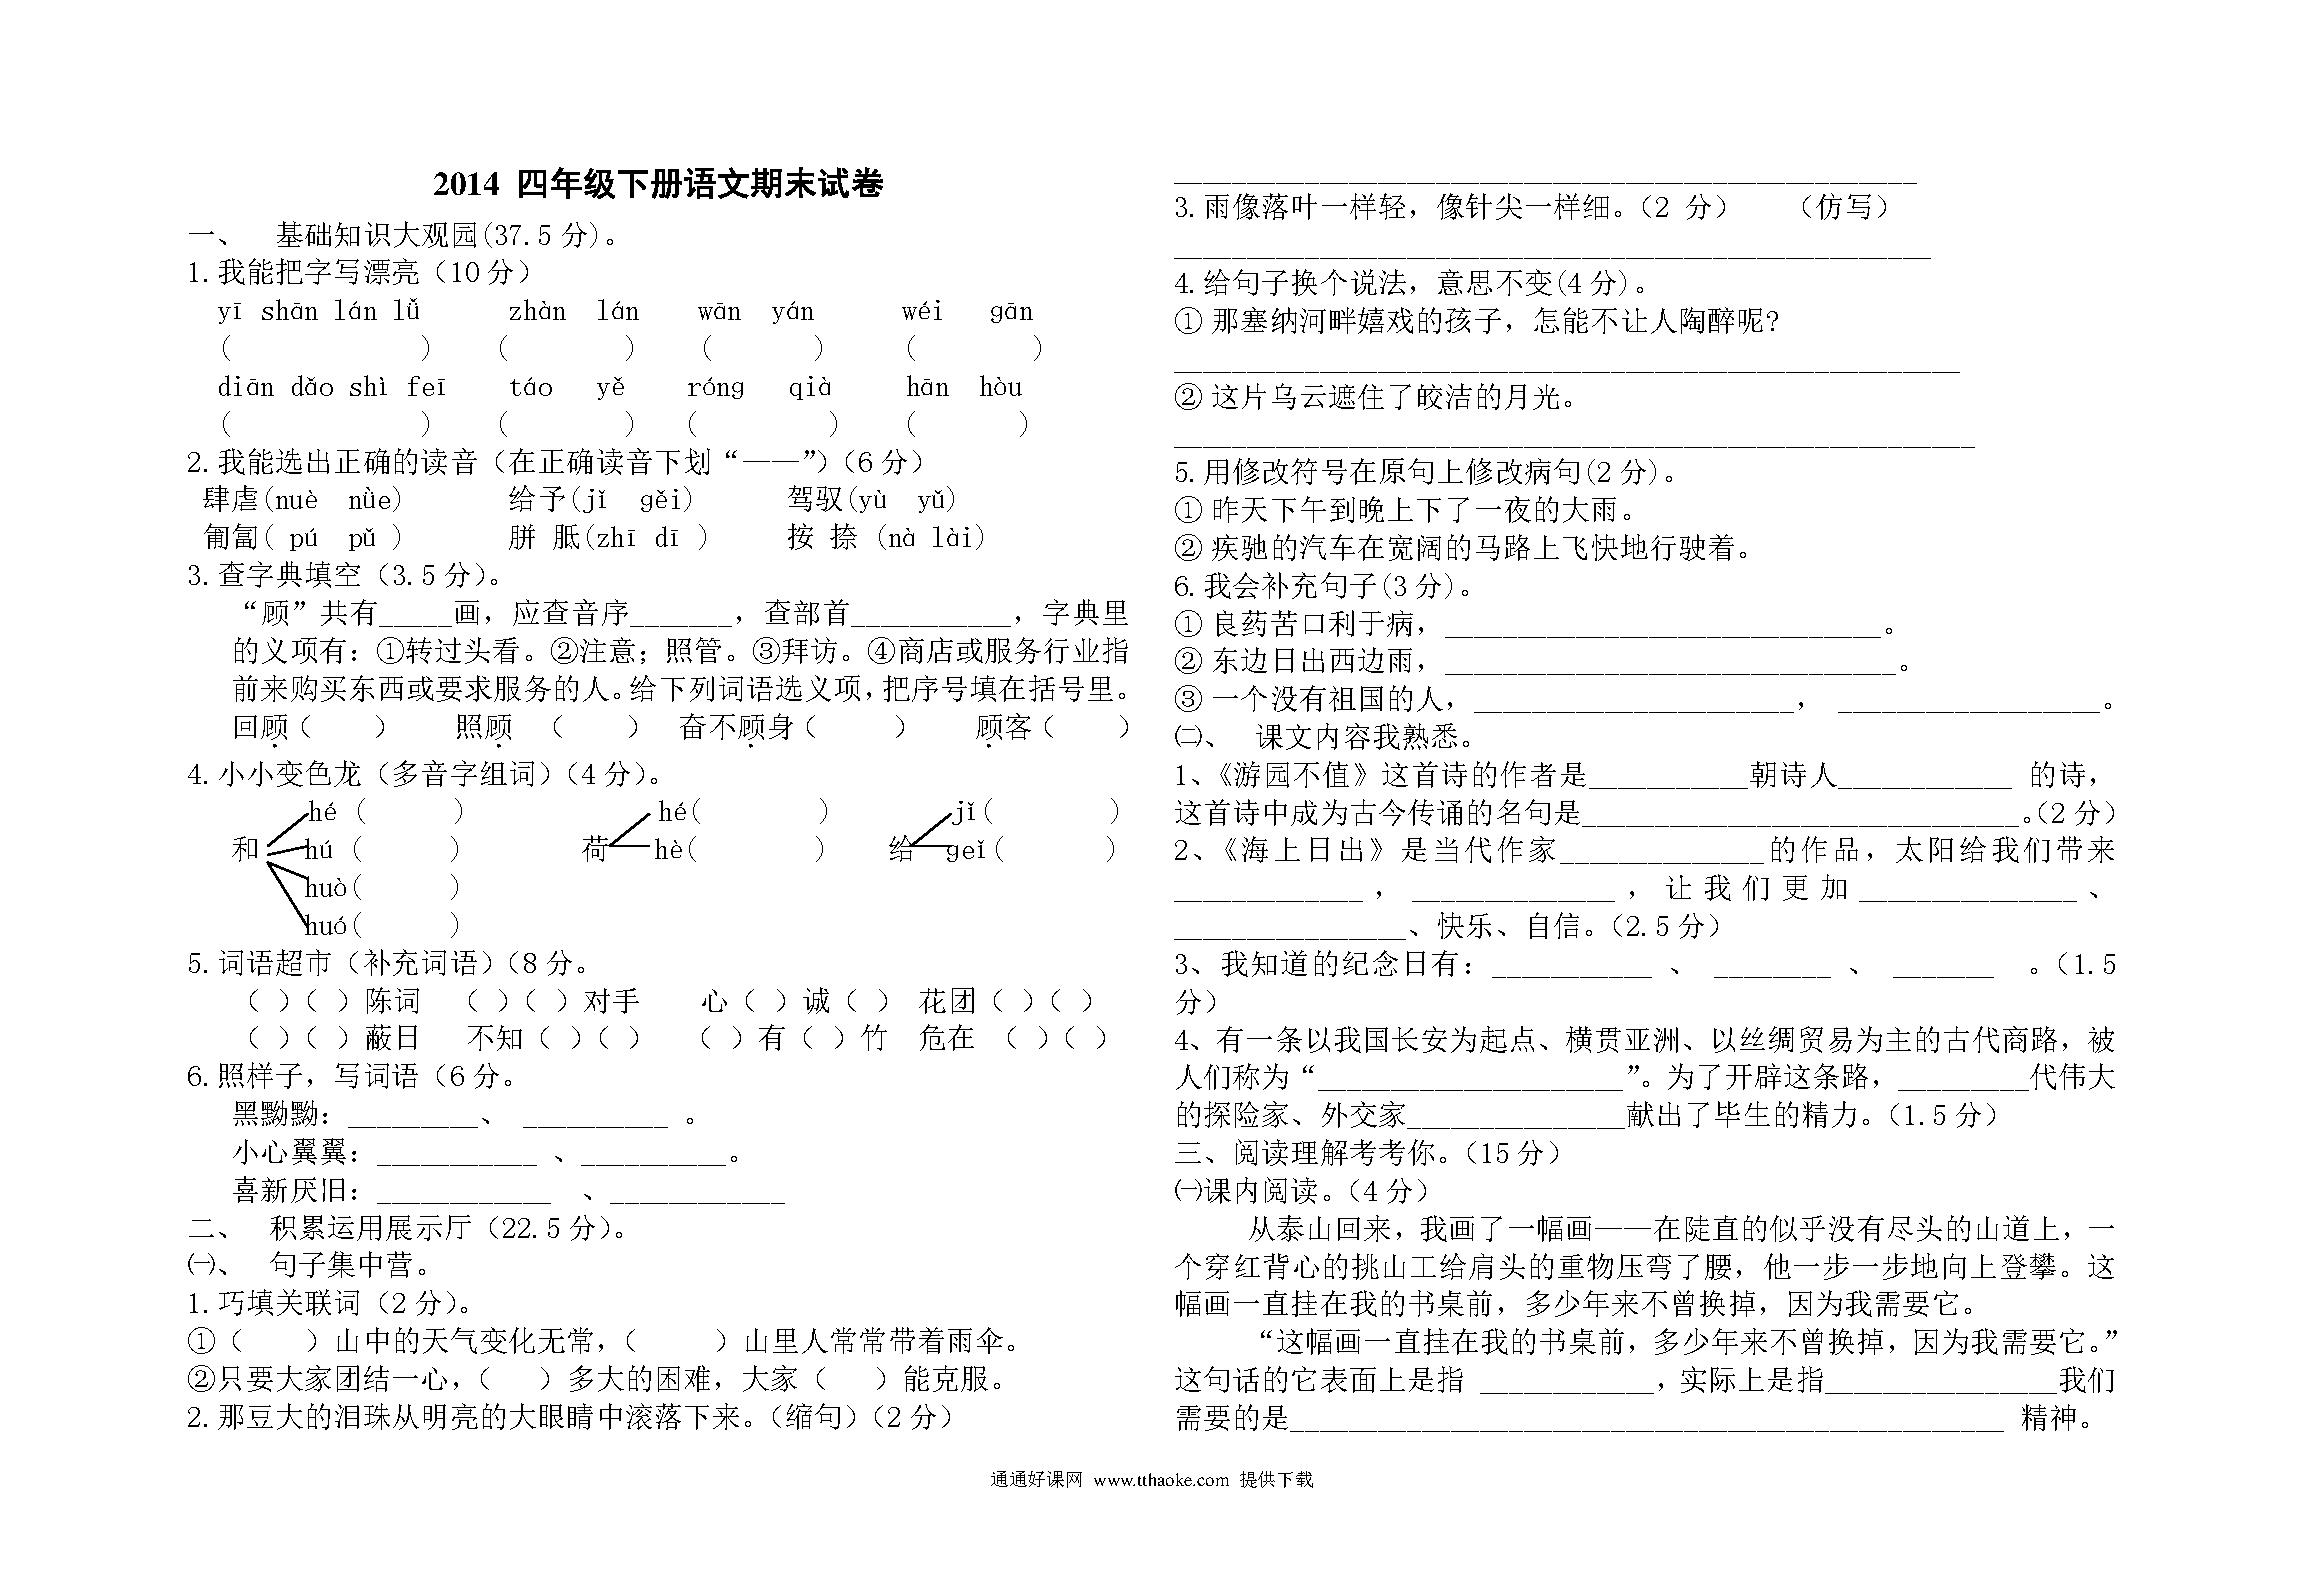 2014 四年级下册语文期末试卷
一、 基础知识大观园(37.5分)。
1.我能把字写漂亮（10分）
yī shān lán lǚ zhàn lán wān yán wéi gān
( ) ( ) ( ) ( )
diān dǎo shì feī táo yě róng qià hān hòu
( ) ( ) ( ) ( )
2.我能选出正确的读音（在正确读音下划“——”）（6分）
肆虐(nuè nüe) 给予(jǐ gěi) 驾驭(yù yǔ)
匍匐( pú pǔ ) 胼 胝(zhī dī ) 按 捺 (nà lài)
3.查字典填空（3.5分）。
“顾”共有_____画，应查音序_______，查部首___________，字典里
的义项有：①转过头看。②注意；照管。③拜访。④商店或服务行业指
前来购买东西或要求服务的人。给下列词语选义项，把序号填在括号里。
回顾（ ） 照顾 （ ） 奋不顾身（ ） 顾客（ ）
4.小小变色龙（多音字组词）（4分）。
hé ( ) hé( ) jǐ( )
和 hú ( ) 荷 hè( ) 给 geǐ( )
huò( )
huó( )
5.词语超市（补充词语）（8分。
（ ）（ ）陈词 （ ）（ ）对手 心（ ）诚（ ） 花团（ ）（ ）
（ ）（ ）蔽日 不知（ ）（ ） （ ）有（ ）竹 危在 （ ）（ ）
6.照样子，写词语（6分。
黑黝黝：_________、 __________ 。
小心翼翼：___________ 、__________。
喜新厌旧：____________ 、____________
二、 积累运用展示厅（22.5分）。
㈠、 句子集中营。
1.巧填关联词（2分）。
①（ ）山中的天气变化无常，（ ）山里人常常带着雨伞。
②只要大家团结一心，（ ）多大的困难，大家（ ）能克服。
2.那豆大的泪珠从明亮的大眼睛中滚落下来。（缩句）（2分）
___________________________________________________
3.雨像落叶一样轻，像针尖一样细。（2 分） （仿写）
____________________________________________________
4.给句子换个说法，意思不变(4分)。
① 那塞纳河畔嬉戏的孩子，怎能不让人陶醉呢?
______________________________________________________
② 这片乌云遮住了皎洁的月光。
_______________________________________________________
5.用修改符号在原句上修改病句(2分)。
① 昨天下午到晚上下了一夜的大雨。
② 疾驰的汽车在宽阔的马路上飞快地行驶着。
6.我会补充句子(3分)。
① 良药苦口利于病，______________________________。
② 东边日出西边雨，_______________________________。
③ 一个没有祖国的人，______________________， __________________。
㈡、 课文内容我熟悉。
1、《游园不值》这首诗的作者是___________朝诗人____________ 的诗，
这首诗中成为古今传诵的名句是______________________________。（2分）
2、《海上日出》是当代作家______________的作品，太阳给我们带来
_____________ ， ______________ ， 让 我 们 更 加 _______________ 、
________________、快乐、自信。（2.5分）
3、我知道的纪念日有：___________ 、 ________ 、 _______ 。（1.5
分）
4、有一条以我国长安为起点、横贯亚洲、以丝绸贸易为主的古代商路，被
人们称为“_____________________”。为了开辟这条路，_________代伟大
的探险家、外交家_______________献出了毕生的精力。（1.5分）
三、阅读理解考考你。（15分）
㈠课内阅读。（4分）
从泰山回来，我画了一幅画——在陡直的似乎没有尽头的山道上，一
个穿红背心的挑山工给肩头的重物压弯了腰，他一步一步地向上登攀。这
幅画一直挂在我的书桌前，多少年来不曾换掉，因为我需要它。
“这幅画一直挂在我的书桌前，多少年来不曾换掉，因为我需要它。”
这句话的它表面上是指 ____________，实际上是指________________我们
需要的是_________________________________________________ 精神。
通通好课网 www.tthaoke.com 提供下载